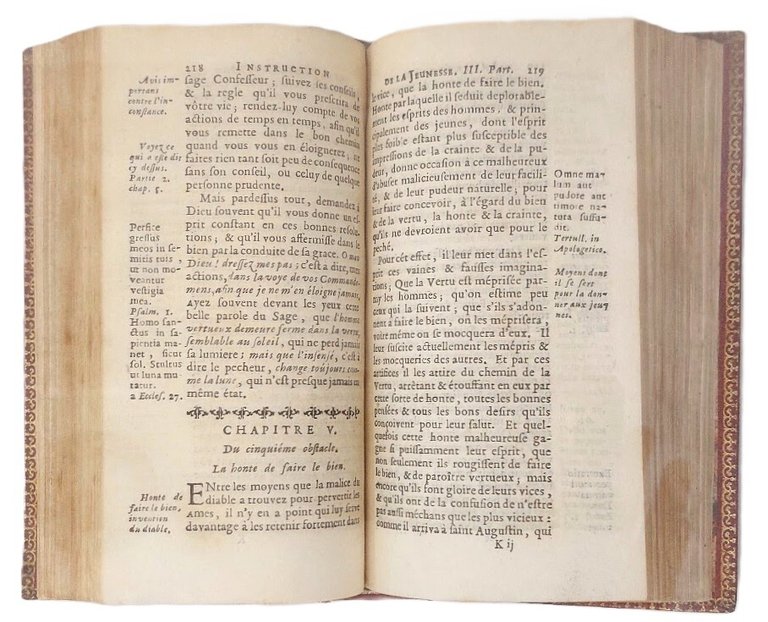 218 INSTRUCTION
Avis im-
portans
contre l'in-
constance.
Voyez ce
qui a esté dit
cy dessus.
Partie 2.
chap. 5.
Perfice
gressus
meos in se-
mitis tuis,
ut non mo-
veantur
vestigia
mea.
Psalm. 1.
Homo san-
ctus in sa-
pientia ma-
net, sicut
sol. Stultus
ut luna mu-
tatur.
2 Eccles. 27.
sage Confesseur; suivez ses conseils,
& la regle qu'il vous prescrira de
vôtre vie; rendez-luy compte de vos
actions de temps en temps, afin qu'il
vous remette dans le bon chemin
quand vous vous en éloignerez; ne
faites rien tant soit peu de consequence
sans son conseil, ou celuy de quelque
personne prudente.
Mais pardessus tout, demandez à
Dieu souvent qu'il vous donne un es-
prit constant en ces bonnes resolu-
tions; & qu'il vous affermisse dans le
bien par la conduite de sa grace. O mon
Dieu! dressez mes pas; c'est à dire, mes
actions, dans la voye de vos Commande-
mens, afin que je ne m'en éloigne jamais.
Ayez souvent devant les yeux cette
belle parole du Sage, que l'homme
vertueux demeure ferme dans la vertu,
semblable au soleil, qui ne perd jamais
sa lumiere; mais que l'insensé, c'est à
dire le pecheur, change toûjours com-
me la lune, qui n'est presque jamais en
même état.
CHAPITRE V.
Du cinquiéme obstacle.
La honte de faire le bien.
Honte de
faire le bien,
invention
du diable.
ENtre les moyens que la malice du
diable a trouvez pour pervertir les
AMES, il n'y en a point qui luy serve
davantage à les retenir fortement dans
DE LA JEUNESSE. III. Part. 219
le vice, que la honte de faire le bien.
Honte par laquelle il seduit deplorable-
ment les esprits des hommes, & prin-
cipalement des jeunes, dont l'esprit
plus foible estant plus susceptible des
impressions de la crainte & de la pu-
deur, donne occasion à ce malheureux
d'abuser malicieusement de leur facili-
té, & de leur pudeur naturelle, pour
leur faire concevoir, à l'égard du bien
& de la vertu, la honte & la crainte,
qu'ils ne devroient avoir que pour le
peché.
Pour cét effet, il leur met dans l'es-
prit ces vaines & fausses imagina-
tions; Que la Vertu est méprisée par-
my les hommes; qu'on estime peu
ceux qui la suivent; que s'ils s'adon-
nent à faire le bien, on les méprisera,
voire même on se mocquera d'eux. Il
leur suscite actuellement les mépris &
les mocqueries des autres. Et par ces
artifices il les attire du chemin de la
Vertu, arrêtant & étouffant en eux par
cette sorte de honte, toutes les bonnes
pensées & tous les bons desirs qu'ils
conçoivent pour leur salut. Et quel-
quefois cette honte malheureuse ga-
gne si puissamment leur esprit, que
non seulement ils rougissent de faire
le bien, & de paroître vertueux; mais
encore qu'ils font gloire de leurs vices,
& qu'ils ont de la confusion de n'estre
pas aussi méchans que les plus vicieux:
comme il arriva à saint Augustin, qui
K ij
Omne ma-
lum aut
pudore aut
timore na-
tura suffu-
dit.
Tertull. in
Apologetico.
Moyens dont
il se sert
pour la don-
ner aux jeu-
nes.